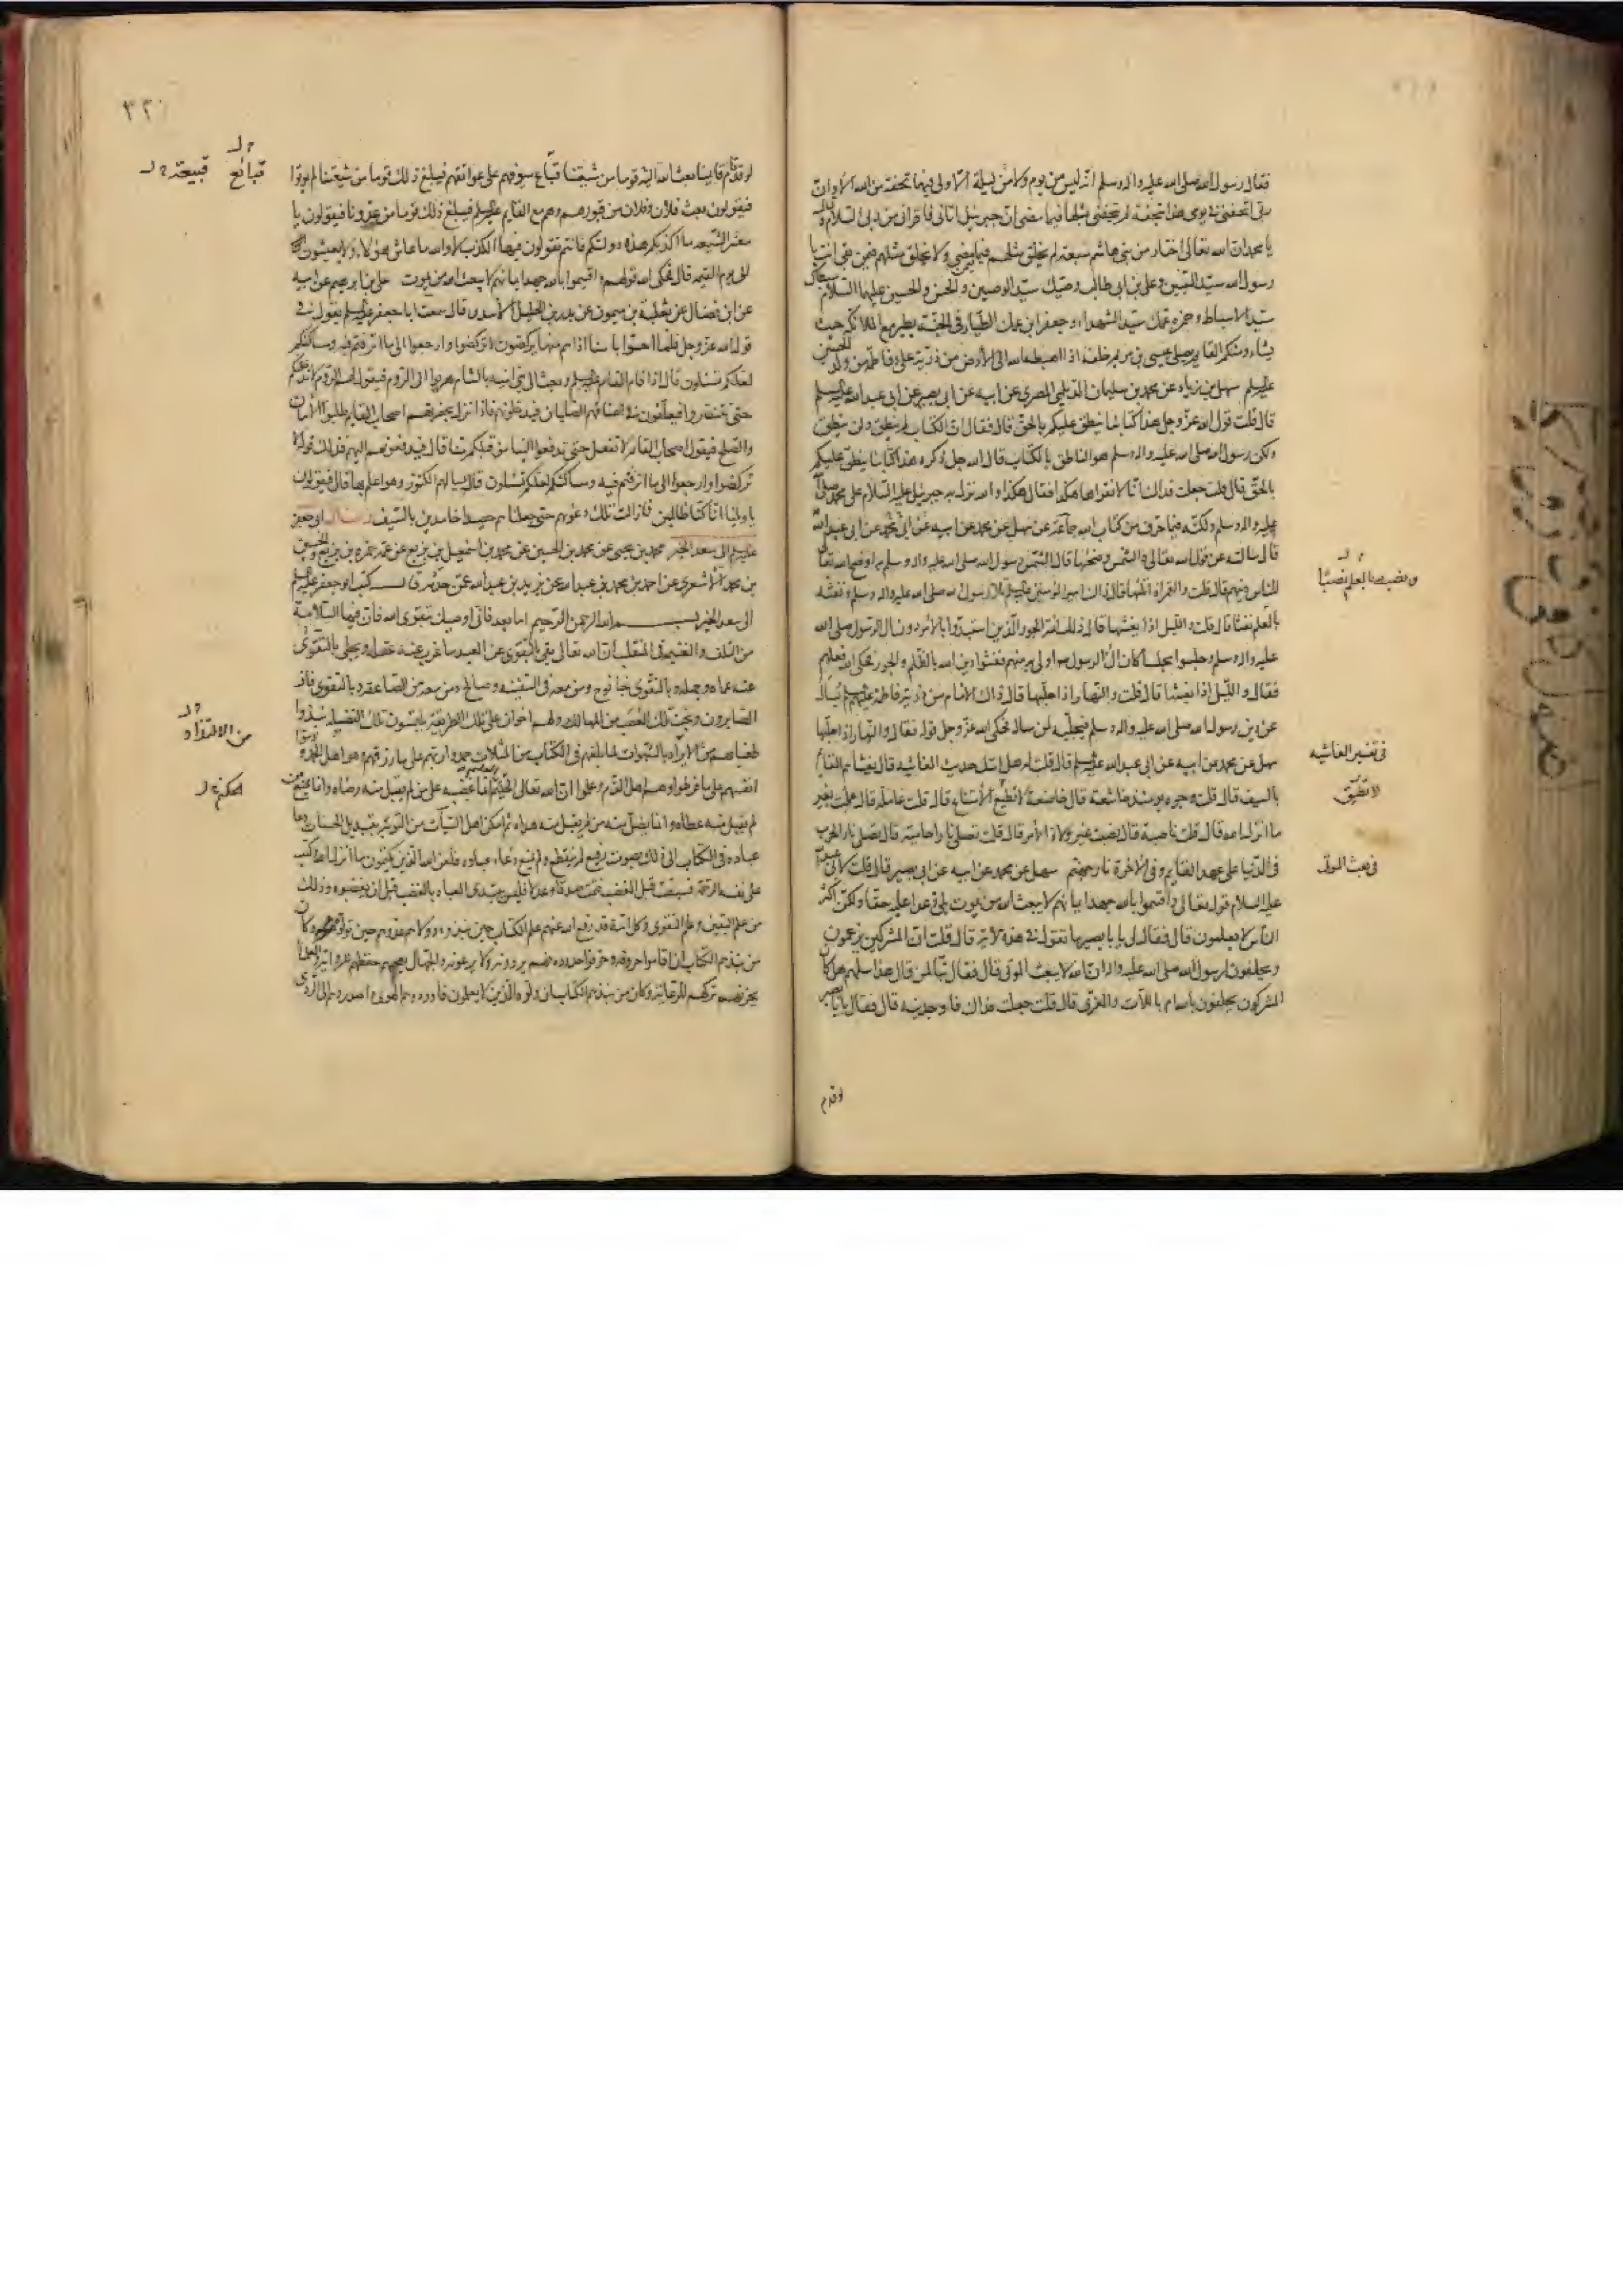 فقال رسول الله صلى الله عليه واله وسلم انه ليس من يوم ولا من ليلة الا ولى فيها تحفة من الله الا وان
ربى اتحفنى فى يومى هذا بتحفة لم يتحفنى بمثلها فيما مضى ان جبرئيل اتانى فاقرأنى من ربى السلام وقال
يا محمد ان الله تعالى اختار من بنى هاشم سبعة لم يخلق مثلهم فيما مضى ولا يخلق مثلهم فيمن بقى انت يا
رسول الله سيد النبيين وعلى بن ابى طالب وصيك سيد الوصيين والحسن والحسين عليهما السلام سبطاك
سيد الاسباط وحمزه عمك سيد الشهداء وجعفر ابن عمك الطيار فى الجنة يطير مع الملائكة حيث
يشاء ومنكم القايم يصلى عيسى بن مريم خلفه اذا اهبطه الله الى الارض من ذرية على وفاطمة من ولد الحسين
عليه السلم سهل بن زياد عن محمد بن سليمان الديلمى المصرى عن ابيه عن ابى بصير عن ابى عبد الله عليه السلم
قال قلت قول الله عز وجل هذا كتابنا ينطق عليكم بالحق قال فقال ان الكتاب لم ينطق ولن ينطق
ولكن رسول الله صلى الله عليه واله وسلم هو الناطق بالكتاب قال الله جل ذكره هذا كتابنا ينطق عليكم
بالحق قال قلت جعلت فداك انا لا نقرأها هكذا فقال هكذا والله نزل به جبرئيل عليه السلام على محمد صلى الله
عليه واله وسلم ولكنه فيما حرف من كتاب الله جماعة عن سهل عن محمد عن ابيه عن ابى محمد عن ابى عبد الله
قال سالته عن قول الله تعالى والشمس وضحيها قال الشمس رسول الله صلى الله عليه واله وسلم به اوضح الله تعالى
للناس دينهم قال قلت والقمر اذا تلها قال ذاك امير المؤمنين عليه السلم تلا رسول الله صلى الله عليه واله وسلم ونفثه
بالعلم نفثا قال قلت والليل اذا يغشيها قال ذلك ائمة الجور الذين استبدوا بالامر دون ال الرسول صلى الله
عليه واله وسلم وجلسوا مجلسا كان ال الرسول اولى به منهم فغشوا دين الله بالظلم والجور فحكى الله فعلهم
فقال والليل اذا يغشها قال قلت والنهار اذا جليها قال ذاك الامام من ذرية فاطمة عليهم السلم يسال
عن دين رسول الله صلى الله عليه واله وسلم فيجليه لمن ساله فحكى الله عز وجل قوله فقال والنهار اذا جليها
سهل عن محمد عن ابيه عن ابى عبد الله عليه السلم قال قلت له هل اتيك حديث الغاشيه قال يغشاهم القايم
بالسيف قال قلت وجوه يومئذ خاشعة قال خاضعة لا تطيع الامتناع قال قلت عاملة قال عملت بغير
ما انزل الله قال قلت ناصبة قال نصبت غير ولاة الامر قال قلت تصلى نارا حامية قال تصلى نار الحرب
فى الدنيا على عهد القايم وفى الاخرة نار جهنم سهل عن محمد عن ابيه عن ابى بصير قال قلت لابى عبد الله
عليه السلام قوله تعالى واقسموا بالله جهد ايمانهم لا يبعث الله من يموت بلى وعدا عليه حقا ولكن اكثر
الناس لا يعلمون قال فقال لى يا با بصير ما تقول فى هذه الاية قال قلت ان المشركين يزعمون
ويحلفون لرسول الله صلى الله عليه واله ان الله لا يبعث الموتى قال فقال تبا لمن قال هذا سلهم هل كان
المشركون يحلفون بالله ام باللات والعزى قال قلت جعلت فداك فاوجدنيه قال فقال يا با بصير
لو قد قام
و نصبه بالعلم نصبا
فى تفسير الغاشيه
لا تطيق
فى بعث الموتى
٣٣٠
قبائع
قبيعة
لو قد قام قايمنا بعث الله اليه قوما من شيعتنا قباع سيوفهم على عواتقهم فيبلغ ذلك قوما من شيعتنا لم يموتوا
فيقولون بعث فلان وفلان من قبورهم وهم مع القايم عليه السلم فيبلغ ذلك قوما من عدونا فيقولون يا
معشر الشيعه ما اكذبكم هذه دولتكم فانتم تقولون فيها الكذب لا والله ما عاش هؤلاء ولا يعيشون
الى يوم القيمه قال فحكى الله قولهم واقسموا بالله جهد ايمانهم لا يبعث الله من يموت على بن ابرهيم عن ابيه
عن ابن فضال عن ثعلبة بن ميمون عن بدر بن الخليل الاسدى قال سمعت ابا جعفر عليه السلم يقول فى
قول الله عز وجل فلما احسوا باسنا اذا هم منها يركضون لا تركضوا وارجعوا الى ما اترفتم فيه ومساكنكم
لعلكم تسئلون قال اذا قام القايم عليه السلم وبعث الى بنى اميه بالشام هربوا الى الروم فيقول لهم الروم لا ندخلكم
حتى تتنصروا فيعلقون فى اعناقهم الصلبان فيدخلونهم فاذا نزل بحضرتهم اصحاب القايم طلبوا الامان
والصلح فيقول اصحاب القايم لا نفعل حتى تدفعوا الينا من قبلكم منا قال فيدفعونهم اليهم فذلك قوله لا
تركضوا وارجعوا الى ما اترفتم فيه ومساكنكم لعلكم تسئلون قال يسالهم الكنوز وهو اعلم بها قال فيقولون
يا ويلنا انا كنا ظالمين فما زالت تلك دعويهم حتى جعلناهم حصيدا خامدين بالسيف رسالة ابى جعفر
عليه السلم الى سعد الخير محمد بن يحيى عن محمد بن الحسين عن محمد بن اسمعيل بن بزيع عن عمه حمزه بن بزيع والحسين
بن محمد الاشعرى عن احمد بن محمد بن عبد الله عن يزيد بن عبد الله عمن حدثه قال كتب ابو جعفر عليه السلم
الى سعد الخير بسم الله الرحمن الرحيم اما بعد فانى اوصيك بتقوى الله فان فيها السلامة
من التلف والغنيمه فى المنقلب ان الله تعالى يقى بالتقوى عن العبد ما عزب عنه عقله ويجلى بالتقوى
عنه عماه وجهله وبالتقوى نجا نوح ومن معه فى السفينه وصالح ومن معه من الصاعقه وبالتقوى فاز
الصابرون ونجت تلك العصب من المهالك ولهم اخوان على تلك الطريقة يلتمسون تلك الفضيله نبذوا
طغيانهم من الايراد بالشهوات لما بلغهم فى الكتاب من المثلات حمدوا ربهم على ما رزقهم وهو اهل الحمد وذموا
انفسهم على ما فرطوا وهم اهل الذم وعلموا ان الله تعالى الحليم العليم انما غضبه على من لم يقبل منه رضاه وانما يمنع من
لم يقبل منه عطاه وانما يضل من لم يقبل منه هداه ثم امكن اهل السيآت من التوبة بتبديل الحسنات دعا
عباده فى الكتاب الى ذلك بصوت رفيع لم ينقطع ولم يمنع دعاء عباده فلعن الله الذين يكتمون ما انزل الله وكتب
على نفسه الرحمة فسبقت قبل الغضب فتمت صدقا وعدلا فليس يبتدى العباد بالغضب قبل ان يغضبوه وذلك
من علم اليقين وعلم التقوى وكل امة قد رفع الله عنهم علم الكتاب حين نبذوه وولاهم عدوهم حين تولوه وكان
من نبذهم الكتاب ان اقاموا حروفه وحرفوا حدوده فهم يروونه ولا يرعونه والجهال يعجبهم حفظهم للرواية والعلماء
يحزنهم تركهم للرعاية وكان من نبذهم الكتاب ان ولوه الذين لا يعلمون فاوردوهم الهوى واصدروهم الى الردى
من الالتذاذ
الحكم